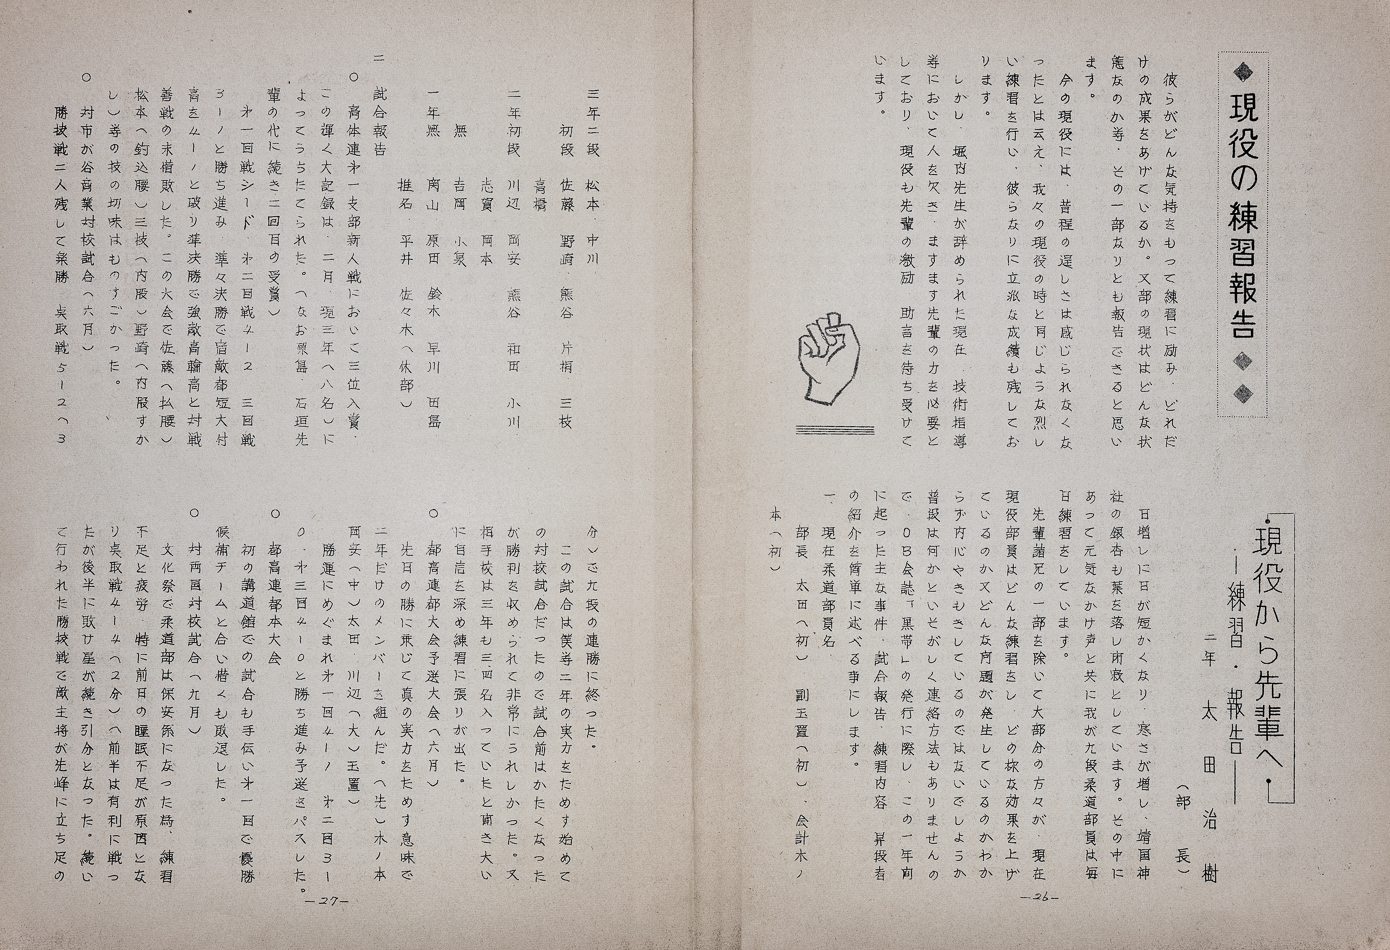 ◆現役の練習報告◆◆
彼らがどんな気持をもって練習に励み、どれだ
けの成果をあげているか。又部の現状はどんな状
態なのか等、その一部なりとも報告できると思い
ます。
今の現役には、昔程の逞しさは感じられなくな
ったとは云え、我々の現役の時と同じような烈し
い練習を行い、彼らなりに立派な成績も残してお
ります。
しかし、堀内先生が辞められた現在、技術指導
等において人を欠き、ますます先輩の力を必要と
しており、現役も先輩の激励、助言を待ち受けて
います。
現役から先輩へ
―練習・報告―
二年 太田治樹
(部長)
日増しに日が短かくなり、寒さが増し、靖国神
社の銀杏も葉を落し術寂としています。その中に
あって元気なかけ声と共に我が九段柔道部員は毎
日練習をしています。
先輩諸兄の一部を除いて大部分の方々が、現在
現役部員はどんな練習をし、どの様な効果を上げ
ているのか又どんな問題が発生しているのかわか
らず内心やきもきしているのではないでしょうか
普段は何かといそがしく連絡方法もありませんの
で、OB会誌「黒帯」の発行に際し、この一年間
に起った主な事件、試合報告、練習内容、昇段者
の紹介を簡単に述べる事にします。
一、現在柔道部員名
部長 太田(初) 副玉置(初)、会計木ノ
本(初)
—26—
三年二段 松本、中川
初段 佐藤 野崎 熊谷 片桐 三枝
高橋
二年初段 川辺 岡安 熊谷 和田 小川
志賀 岡本
無 吉岡 小泉
一年無 南山 原田 鈴木 早川 田畠
推名 平井 佐々木(休部)
二 試合報告
○ 高体連第一支部新人戦において三位入賞、
この輝く大記録は、二月、現三年(八名)に
よってうちたてられた。(なお栗冨、石垣先
輩の代に続き二回目の受賞)
第一回戦シード、第二回戦4―2 三回戦
3―1と勝ち進み、準々決勝で宿敵都短大村
高を4―1と破り準決勝で強敵高輪高と対戦
善戦の末惜敗した。この大会で佐藤(払腰)
松本(釣込腰)三枝(内股)野崎(内股すか
し)等の技の切味はものすごかった。
○ 対市が谷商業対校試合(六月)
勝抜戦二人残して楽勝、点取戦5―2(3
分)で九段の連勝に終った。
この試合は僕等二年の実力をためす始めて
の対校試合だったので試合前はかたくなった
が勝利を収められて非常にうれしかった。又
相手校は三年も三四名入っていたと聞き大い
に自信を深め練習に張りが出た。
○ 都高連都大会予選大会(六月)
先日の勝に乗じて真の実力をためす意味で
二年だけのメンバーを組んだ。(先)木ノ本
岡安(中)太田、川辺(大)玉置)
勝運にめぐまれ第一回4―1 第二回3―
0、第三回4―0と勝ち進み予選をパスした。
○ 都高連都本大会
初の講道館での試合も手伝い第一回で優勝
候補チームと合い惜くも敗退した。
○ 対両国対校試合(九月)
文化祭で柔道部は保安係になった為、練習
不足と疲労、特に前日の睡眠不足が原因とな
り点取戦4―4(2分)(前半は有利に戦っ
たが後半に敗け星が続き引分となった。続い
て行われた勝抜戦で敵主将が先峰に立ち足の
—27—